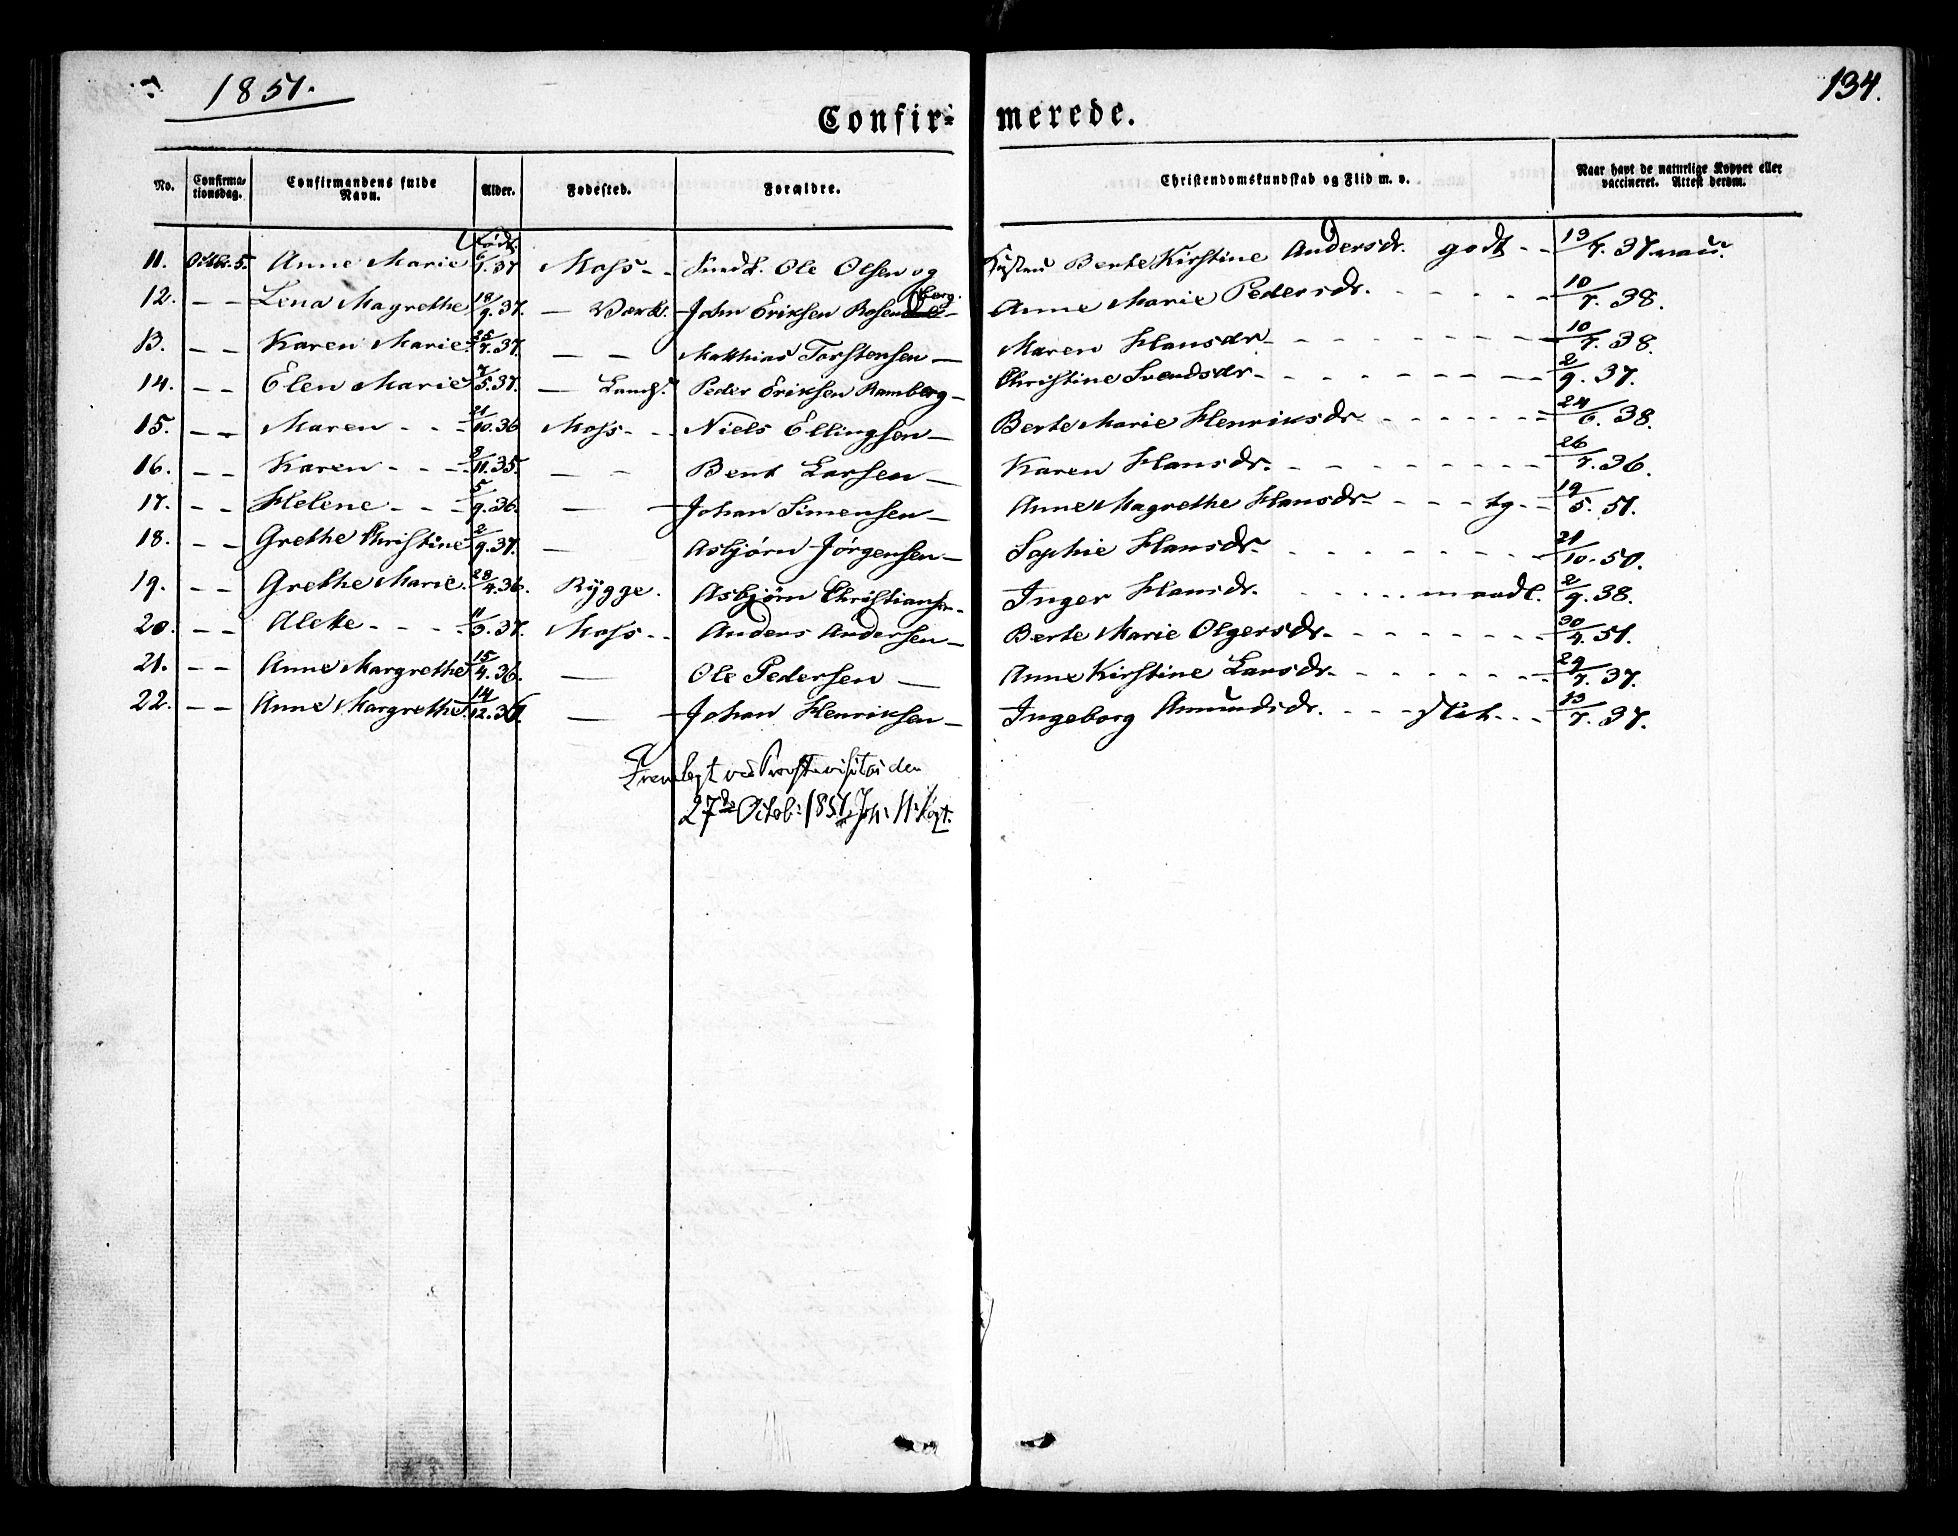 1851.
134.
Confir- merede.
No. Confirmationsdag. Confirmandens fulde Navn. Alder. Fødested. Forældre. Christendomskundskab og Flid m. v. Naar havt de naturlige Kopper eller vaccineret. Attest derom.
Født.
11. Octbr. 5. Anne Marie 6/7.37 Moss - - Ole Olsen og Berte Kirstine Andersdr. godt - - 13/7.37
12. - - Lena Magrethe 18/9.37. — Værk. John Eriksen Rosenberg. - Anne Marie Pedersdr. - - - - - 10/7.38.
13. - - Karen Marie. 25/7.37. — — Matthias Torstensen — Maren Hansdr. - - - - - - 10/7.38.
14. - - Elen Marie 7/5.37. — Lands. Peder Eriksen Ramberg - Christine Svendsdr. - - - - - - 2/9.37.
15. - - Maren - - - 21/10.36 Moss - - Niels Ellingsen — Berte Marie Henriksdr. - - - - - 24/6.38.
16. - - Karen - - - 2/11.35. — - Bent Larsen — Karen Hansdr. - - - - - - 26/7.36.
17. - - Helene - - - 5/9.36. — Johan Simensen — Anne Magrethe Hansdr. - - - tg - 19/5.51.
18. - - Grethe Christine 2/9.37. — Asbjørn Jørgensen — Sophie Hansdr. - - - - - - 21/10.50.
19. - - Grethe Marie. 28/4.36. Rygge. Asbjørn Christiansen - Inger Hansdr. - - - - maadl. 2/9.38.
20. - - Alette - - - 11/3.37. Moss - - Anders Andersen — Berte Marie Olgersdr. - - - - - - 30/4.51.
21. - - Anne Margrethe 15/4.36. — Ole Pedersen — Anne Kirstine Larsdr. - - - - - - 29/7.37.
22. - - Anne Margrethe. 14/12.36. — Johan Henriksen — Ingeborg Amundsdr. - - - slet - - - 13/7.37.
Fremlagt ved Provstevisitas den
27de Octob: 1851. Joh: N: Vogt.